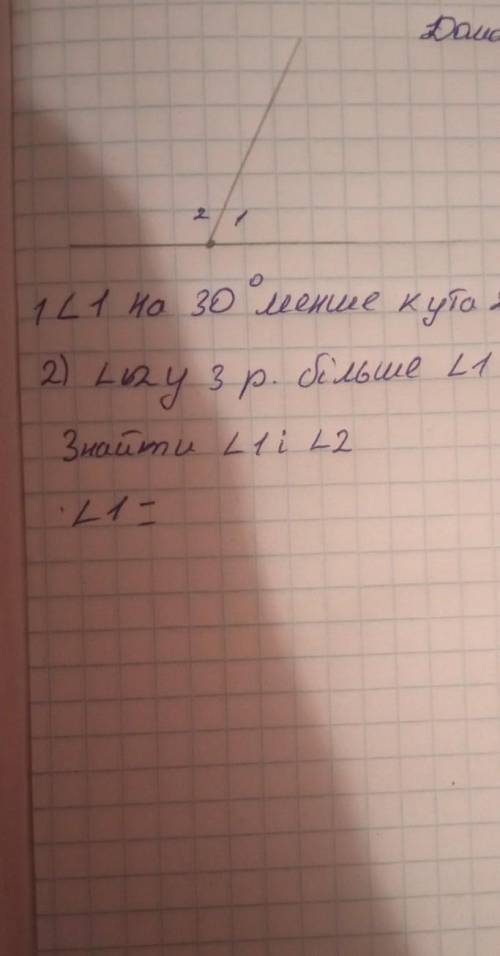 2 1
1 ∠1 на 30° менше кута 2
2) ∠2 у 3 р. більше ∠1
Знайти ∠1 і ∠2
∠1 =